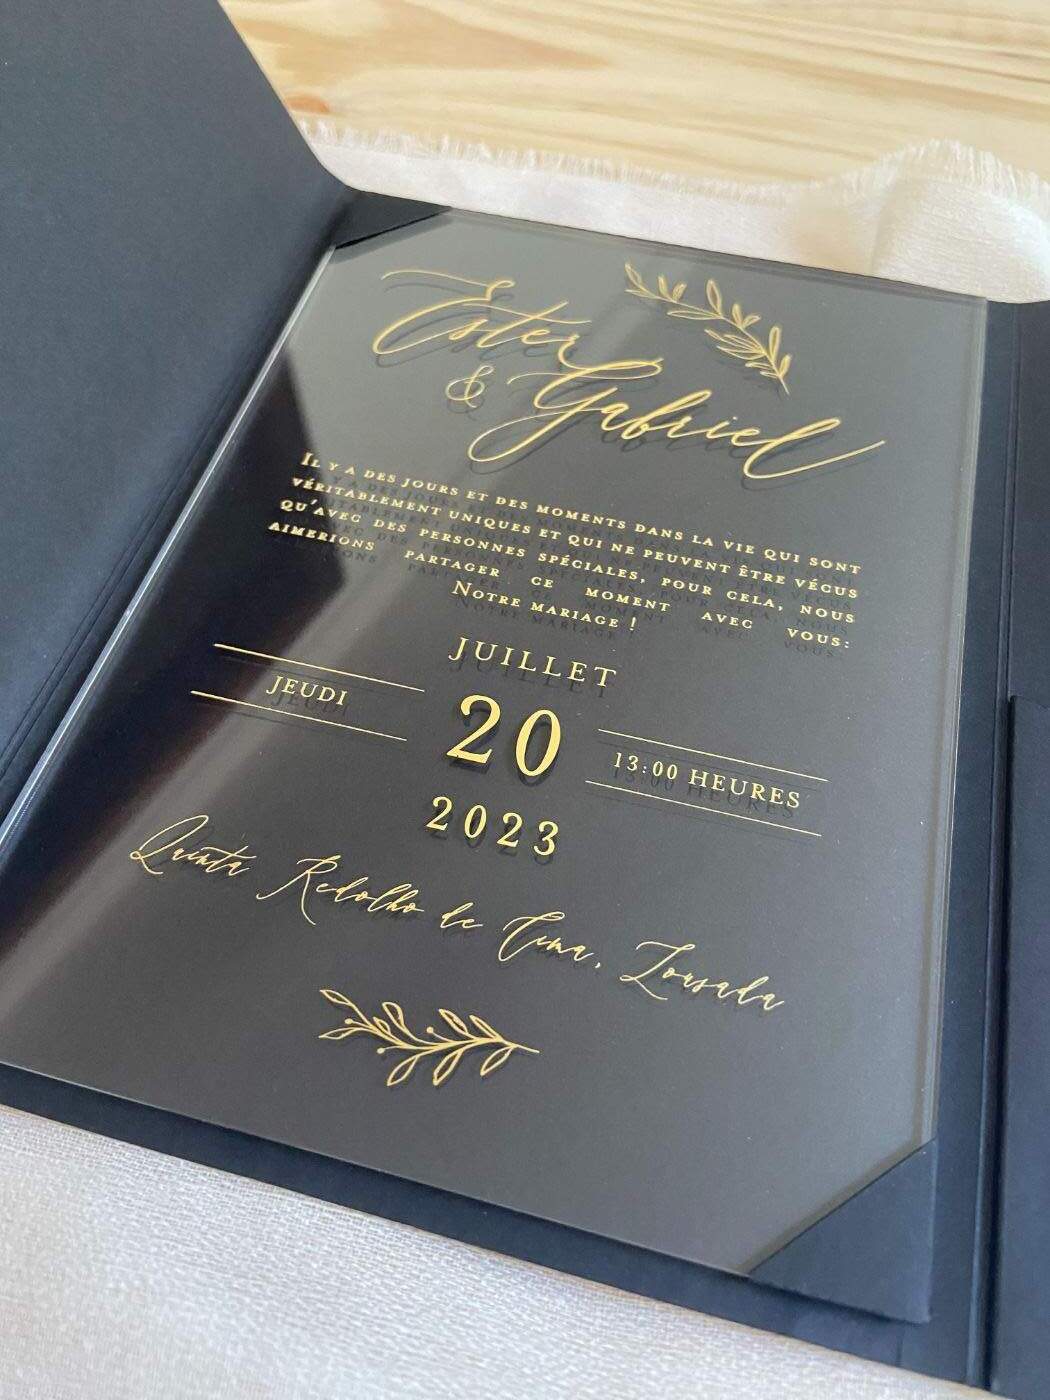 Ester
& Gabriel
Il y a des jours et des moments dans la vie qui sont
véritablement uniques et qui ne peuvent être vécus
qu'avec des personnes spéciales, pour cela, nous
aimerions partager ce moment avec vous:
Notre mariage !
JUILLET
JEUDI
20
13:00 HEURES
2023
Quinta Redolho de Cima, Lousada